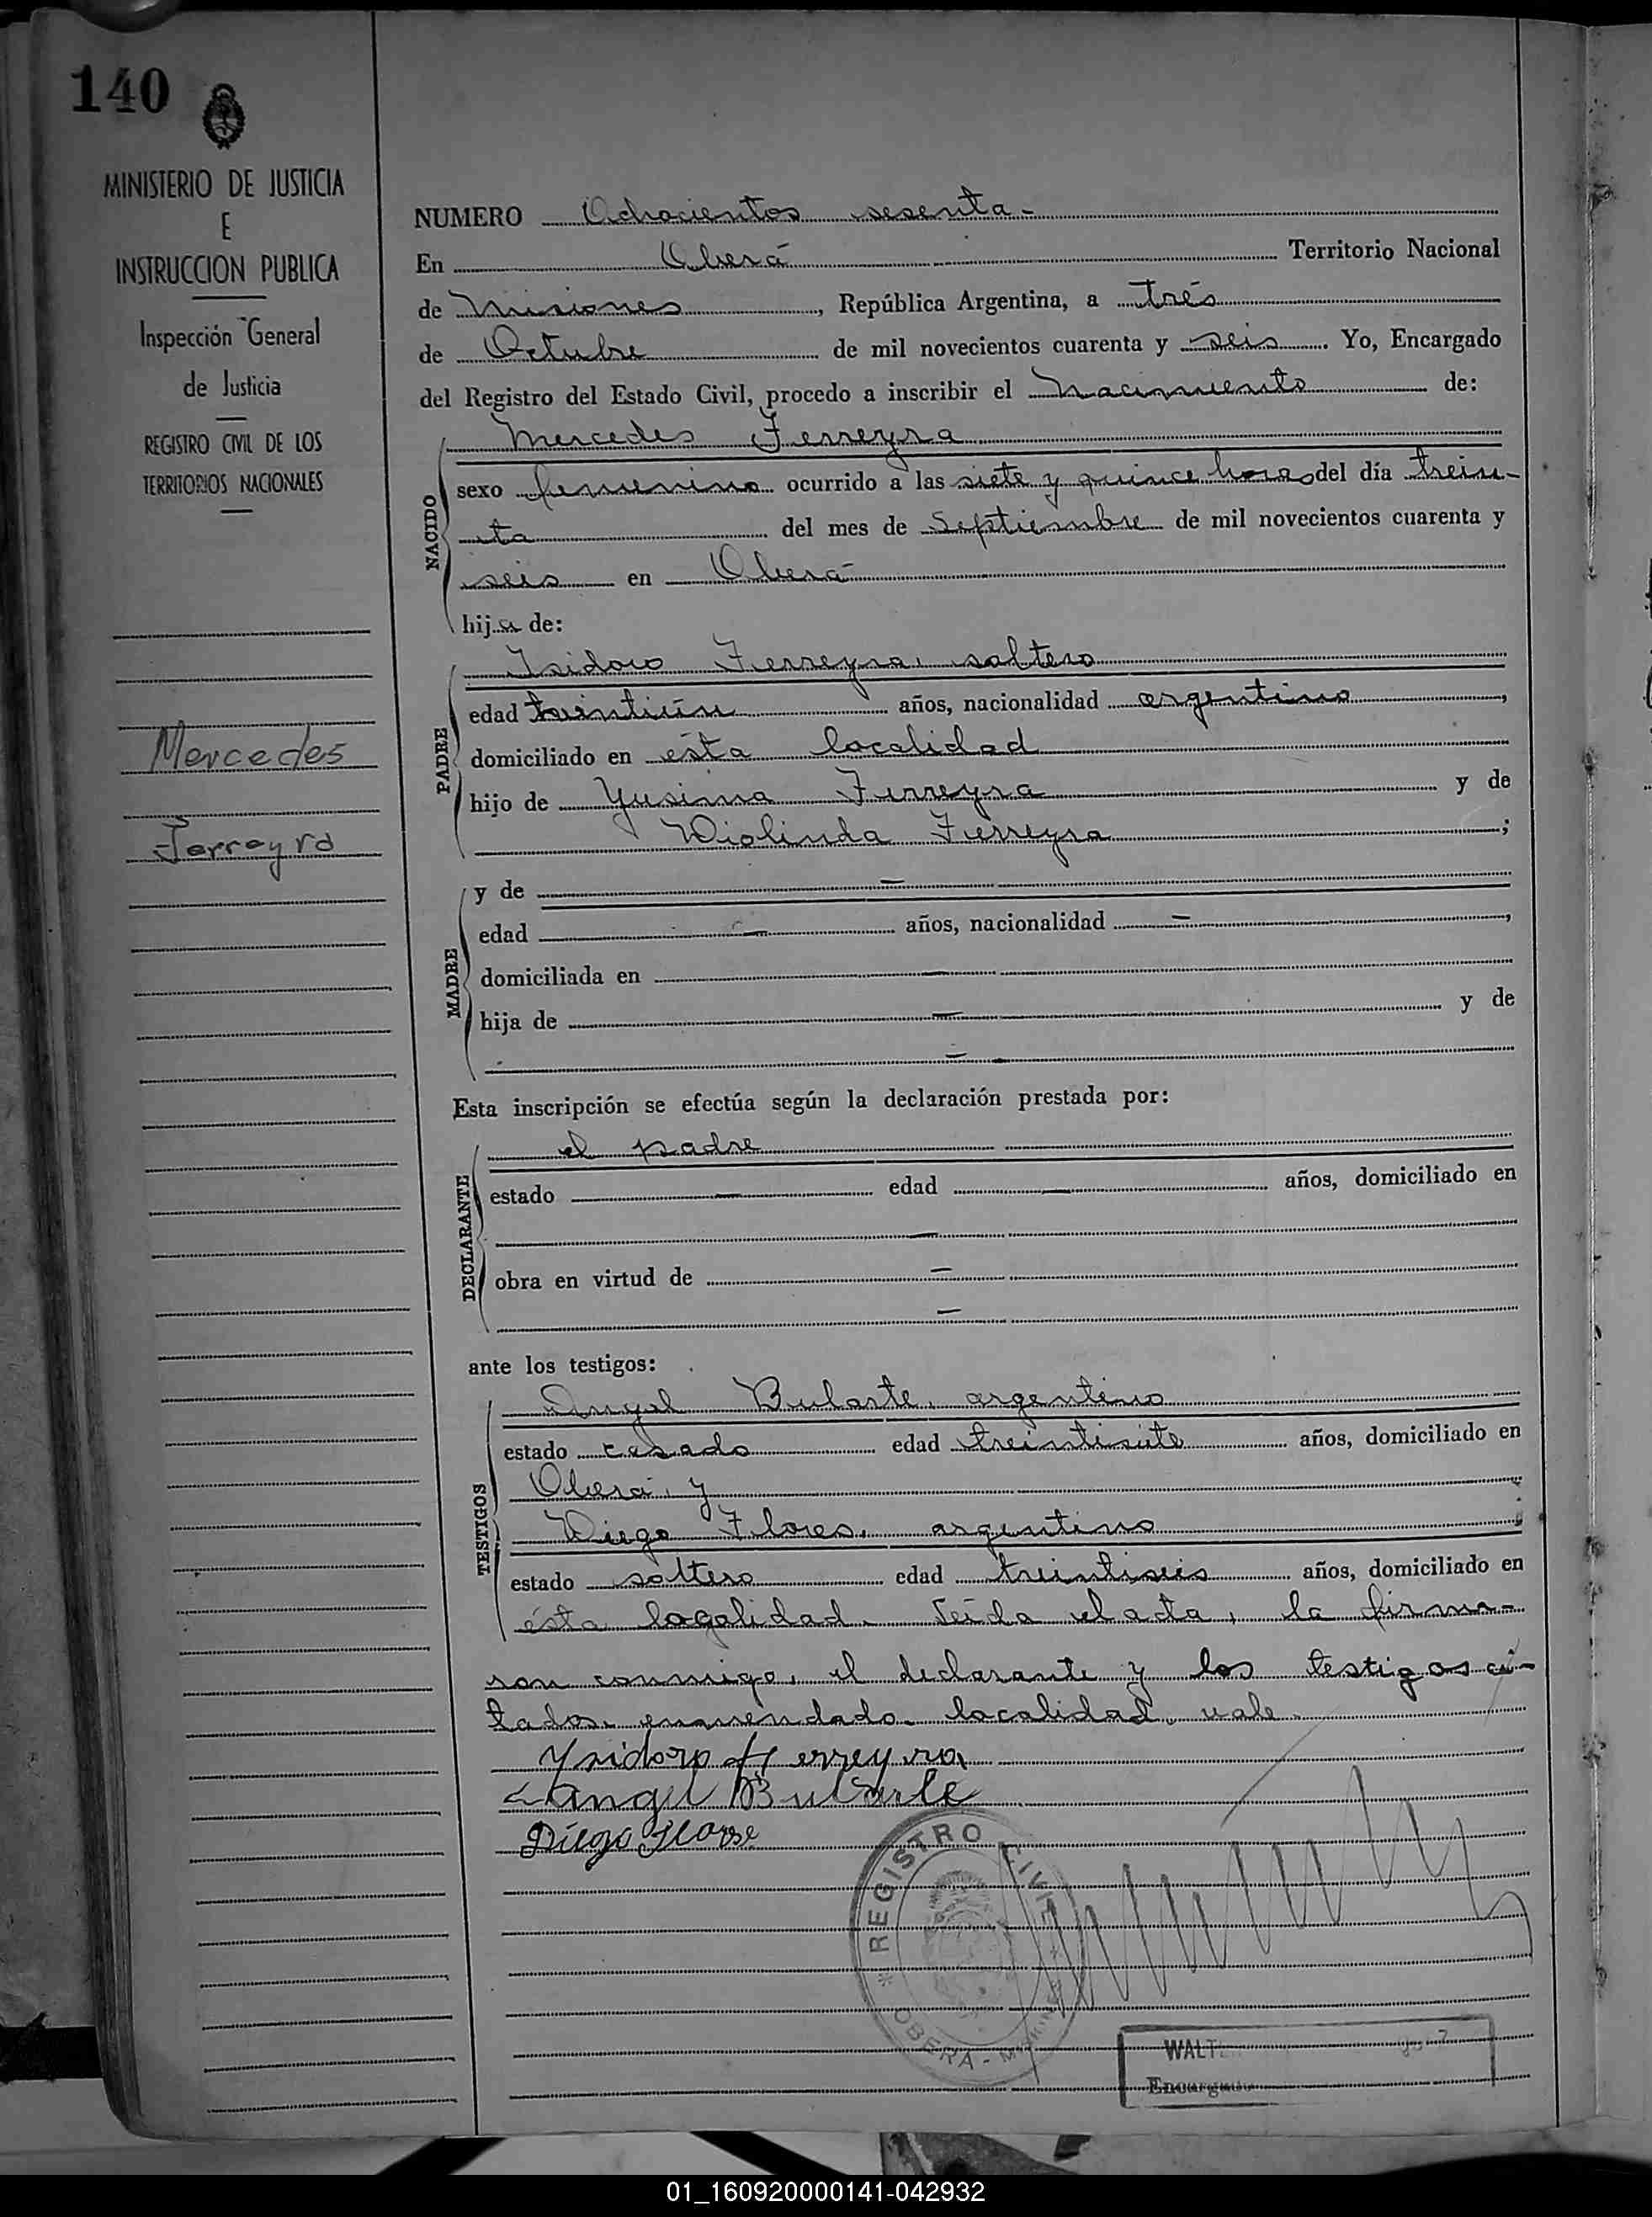 140
MINISTERIO DE JUSTICIA
E
INSTRUCCION PUBLICA
Inspección General
de Justicia
REGISTRO CIVIL DE LOS
TERRITORIOS NACIONALES
Mercedes
Ferreyra
NUMERO Ochocientos sesenta-
En Oberá Territorio Nacional
de Misiones, República Argentina, a trés
de Octubre de mil novecientos cuarenta y seis. Yo, Encargado
del Registro del Estado Civil, procedo a inscribir el nacimiento de:
NACIDO
Mercedes Ferreyra
sexo femenino ocurrido a las siete y quince horas del día trein-
ta del mes de Septiembre de mil novecientos cuarenta y
seis en Oberá
hija de:
PADRE
Isidoro Ferreyra, soltero
edad años, nacionalidad argentino,
domiciliado en ésta localidad
hijo de Ferreyra y de
Ferreyra;
MADRE
y de —
edad — años, nacionalidad —,
domiciliada en —
hija de — y de
—
Esta inscripción se efectúa según la declaración prestada por:
DECLARANTE
el padre
estado — edad — años, domiciliado en
—
obra en virtud de —
—
ante los testigos:
TESTIGOS
Angel Bularte, argentino
estado casado edad treintisiete años, domiciliado en
Oberá, y
Diego Flores, argentino
estado soltero edad treintiseis años, domiciliado en
ésta logalidad. Leída el acta, la firma-
ron conmigo, el declarante y los testigos ci-
tados. enmendado. localidad. vale.
Ysidoro Ferreyra
Angel Bularte
Diego
REGISTRO CIVIL
OBERA - MISIONES
Encargado
01_160920000141-042932